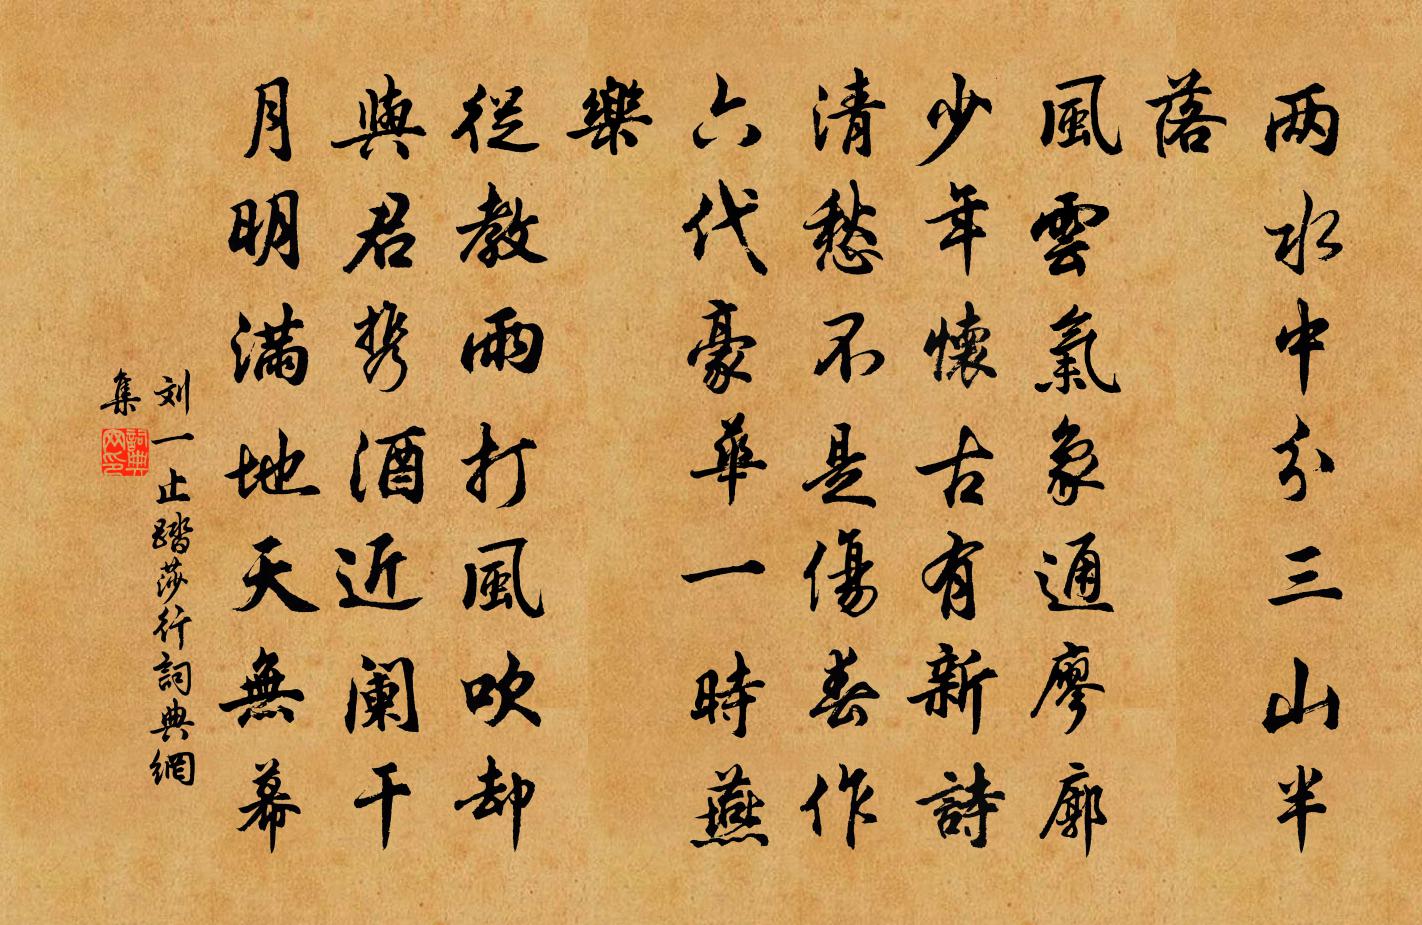 两水中分三山半
落
風雲氣象通廖廓
少年懷古有新詩
清愁不是傷春作
六代豪華一時燕
樂
從教雨打風吹却
與君携酒近阑干
月明满地天無幕
刘一止踏莎行詞典網
集
詞典
网印